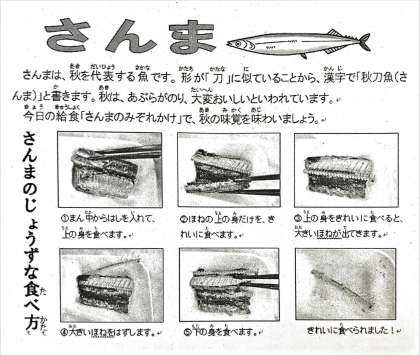 さんま
さんまは、秋を代表する魚です。形が「刀」に似ていることから、漢字で「秋刀魚(さ
んま)」と書きます。秋は、あぶらがのり、大変おいしいといわれています。
今日の給食「さんまのみぞれかけ」で、秋の味覚を味わいましょう。
さんまのじょうずな食べ方
①まん中からはしを入れて、
上の身を食べます。
②ほねの上の身だけを、き
れいに食べます。
③上の身をきれいに食べると、
大きいほねが出てきます。
④大きいほねをはずします。
⑤下の身を食べます。
きれいに食べられました！